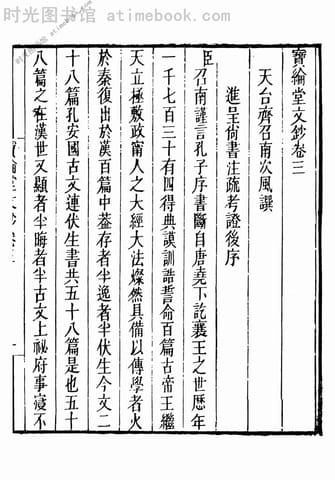 时光图书馆 atimebook.com
寶綸堂文鈔卷三
天台齊召南次風譔
進呈尚書注疏考證後序
臣召南謹言孔子序書斷自唐堯下訖襄王之世歷年
一千七百三十有四得典謨訓誥誓命百篇古帝王繼
天立極敷政甯人之大經大法燦然具備以傳學者火
於秦復出於漢百篇中葢存者半逸者半伏生今文二
十八篇孔安國古文連伏生書共五十八篇是也五十
八篇之在漢世又顯者半晦者半古文上祕府事寢不
时光图书馆 atimebook.com